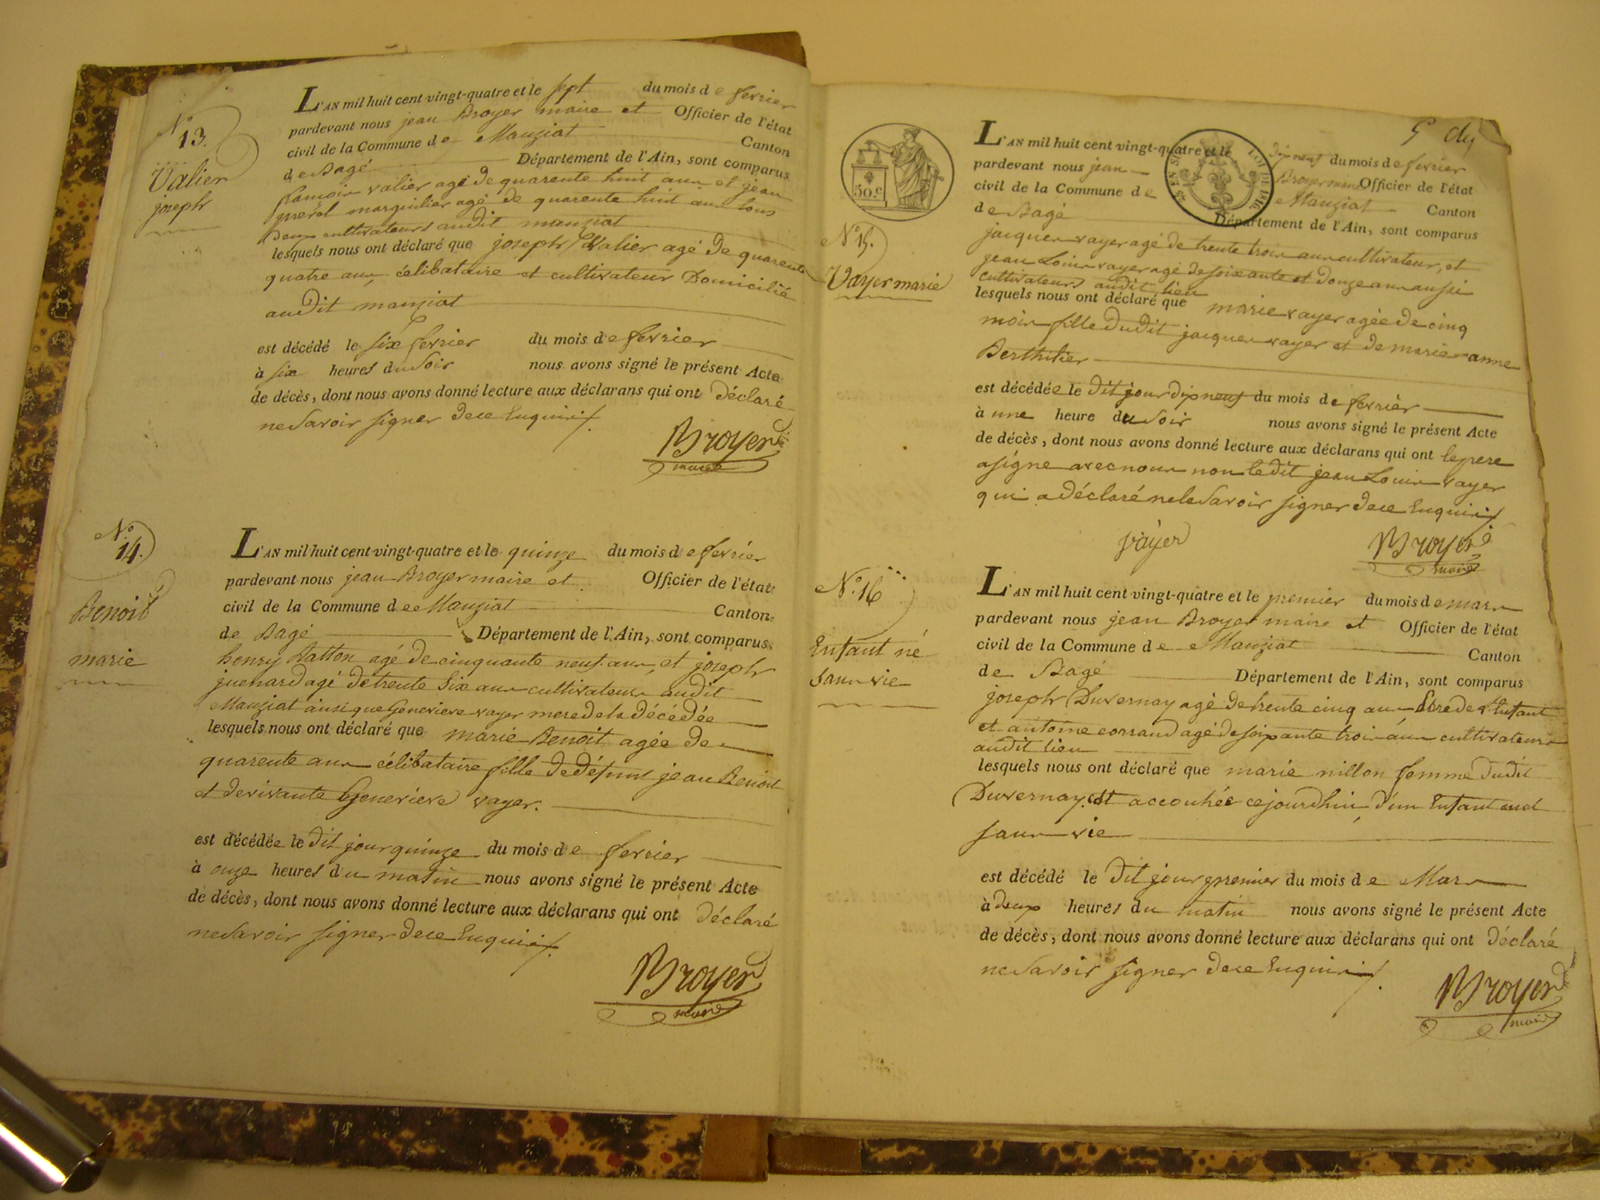 N.o
13.
Valier
joseph
L'AN mil huit cent vingt-quatre et le sept du mois de fevrier
pardevant nous jean Broyer maire et Officier de l'état
civil de la Commune de Manziat Canton
de Bagé Département de l'Ain, sont comparus
francois valier agé de quarente huit ans et jean
marguilier agé de quarente huit ans tous
deux cultivateurs audit manziat
lesquels nous ont déclaré que joseph Valier agé de quarente
quatre ans, célibataire et cultivateur Domicilié
audit manziat
est décédé le six fevrier du mois de fevrier
à six heures du soir nous avons signé le présent Acte
de décès, dont nous avons donné lecture aux déclarans qui ont déclaré
ne savoir signer de ce Enquis
Broyer
maire
N.o
14.
Benoit
marie
L'AN mil huit cent vingt-quatre et le quinze du mois de fevrier
pardevant nous jean Broyer maire et Officier de l'état
civil de la Commune de Manziat Canton
de Bagé Département de l'Ain, sont comparus
henry Batton agé de cinquante neuf ans et joseph
juenard agé de trente six ans cultivateurs audit
Manziat ainsi que Genevieve vayer mere de la décédée
lesquels nous ont déclaré que marie Benoit agée de
quarente ans célibataire fille de défunt jean Benoit
et de vivante Genevieve vayer.
est décédée le dit jour quinze du mois de fevrier
à onze heures du matin nous avons signé le présent Acte
de décès, dont nous avons donné lecture aux déclarans qui ont déclaré
ne savoir signer de ce Enquis
Broyer
maire
50.c
N.o 15.
Vayer marie
L'AN mil huit cent vingt-quatre et le dix neuf du mois de fevrier
pardevant nous jean Broyer maire Officier de l'état
civil de la Commune de Manziat Canton
de Bagé Département de l'Ain, sont comparus
jacques vayer agé de trente trois ans cultivateur, et
jean Louis vayer agé de soixante et douze ans aussi
cultivateurs audit lieu
lesquels nous ont déclaré que marie vayer agée de cinq
mois fille dudit jacques vayer et de marie anne
Berthilier
est décédée le dit jour dix neuf du mois de fevrier
à une heure du soir nous avons signé le présent Acte
de décès, dont nous avons donné lecture aux déclarans qui ont le pere
a signé avec nous non le dit jean Louis vayer
qui a déclaré ne le savoir signer de ce Enquis
vayer
Broyer
maire
N.o 16
Enfant né
sans vie
L'AN mil huit cent vingt-quatre et le premier du mois de mars
pardevant nous jean Broyer maire et Officier de l'état
civil de la Commune de Manziat Canton
de Bagé Département de l'Ain, sont comparus
joseph Duvernay agé de trente cinq ans Pere de l'Enfant
et antoine corsand agé de soixante trois ans cultivateurs
audit lieu
lesquels nous ont déclaré que marie nillon femme dudit
Duvernay, est accouchée ce jourdhui d'un Enfant
sans vie
est décédé le dit jour premier du mois de Mars
à deux heures du matin nous avons signé le présent Acte
de décès, dont nous avons donné lecture aux déclarans qui ont déclaré
ne savoir signer de ce Enquis
Broyer
maire